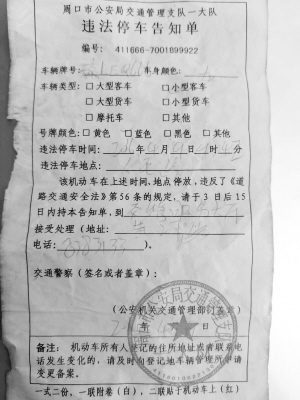 周口市公安局交通管理支队一大队
违法停车告知单
编号: 411666-7001899922
车辆牌号: 车身颜色:
车辆类型: □大型客车 □小型客车
□大型货车 □小型货车
□摩托车 □其他
号牌颜色: □黄色 □蓝色 □黑色 □其他
违法停车时间: 年 月 日 时 分
违法停车地点:
该机动车在上述时间、地点停放,违反了《道
路交通安全法》第56条的规定,请于3日后15
日内持本告知单,到
接受处理(地址:
电话: )
交通警察(签名或者盖章):
(公安机关交通管理部门签章)
备注: 机动车所有人登记的住所地址或者联系电
话发生变化的,请及时向登记地车辆管理所申请
变更备案。
一式二份,一联附卷(白),二联贴于机动车上(红)